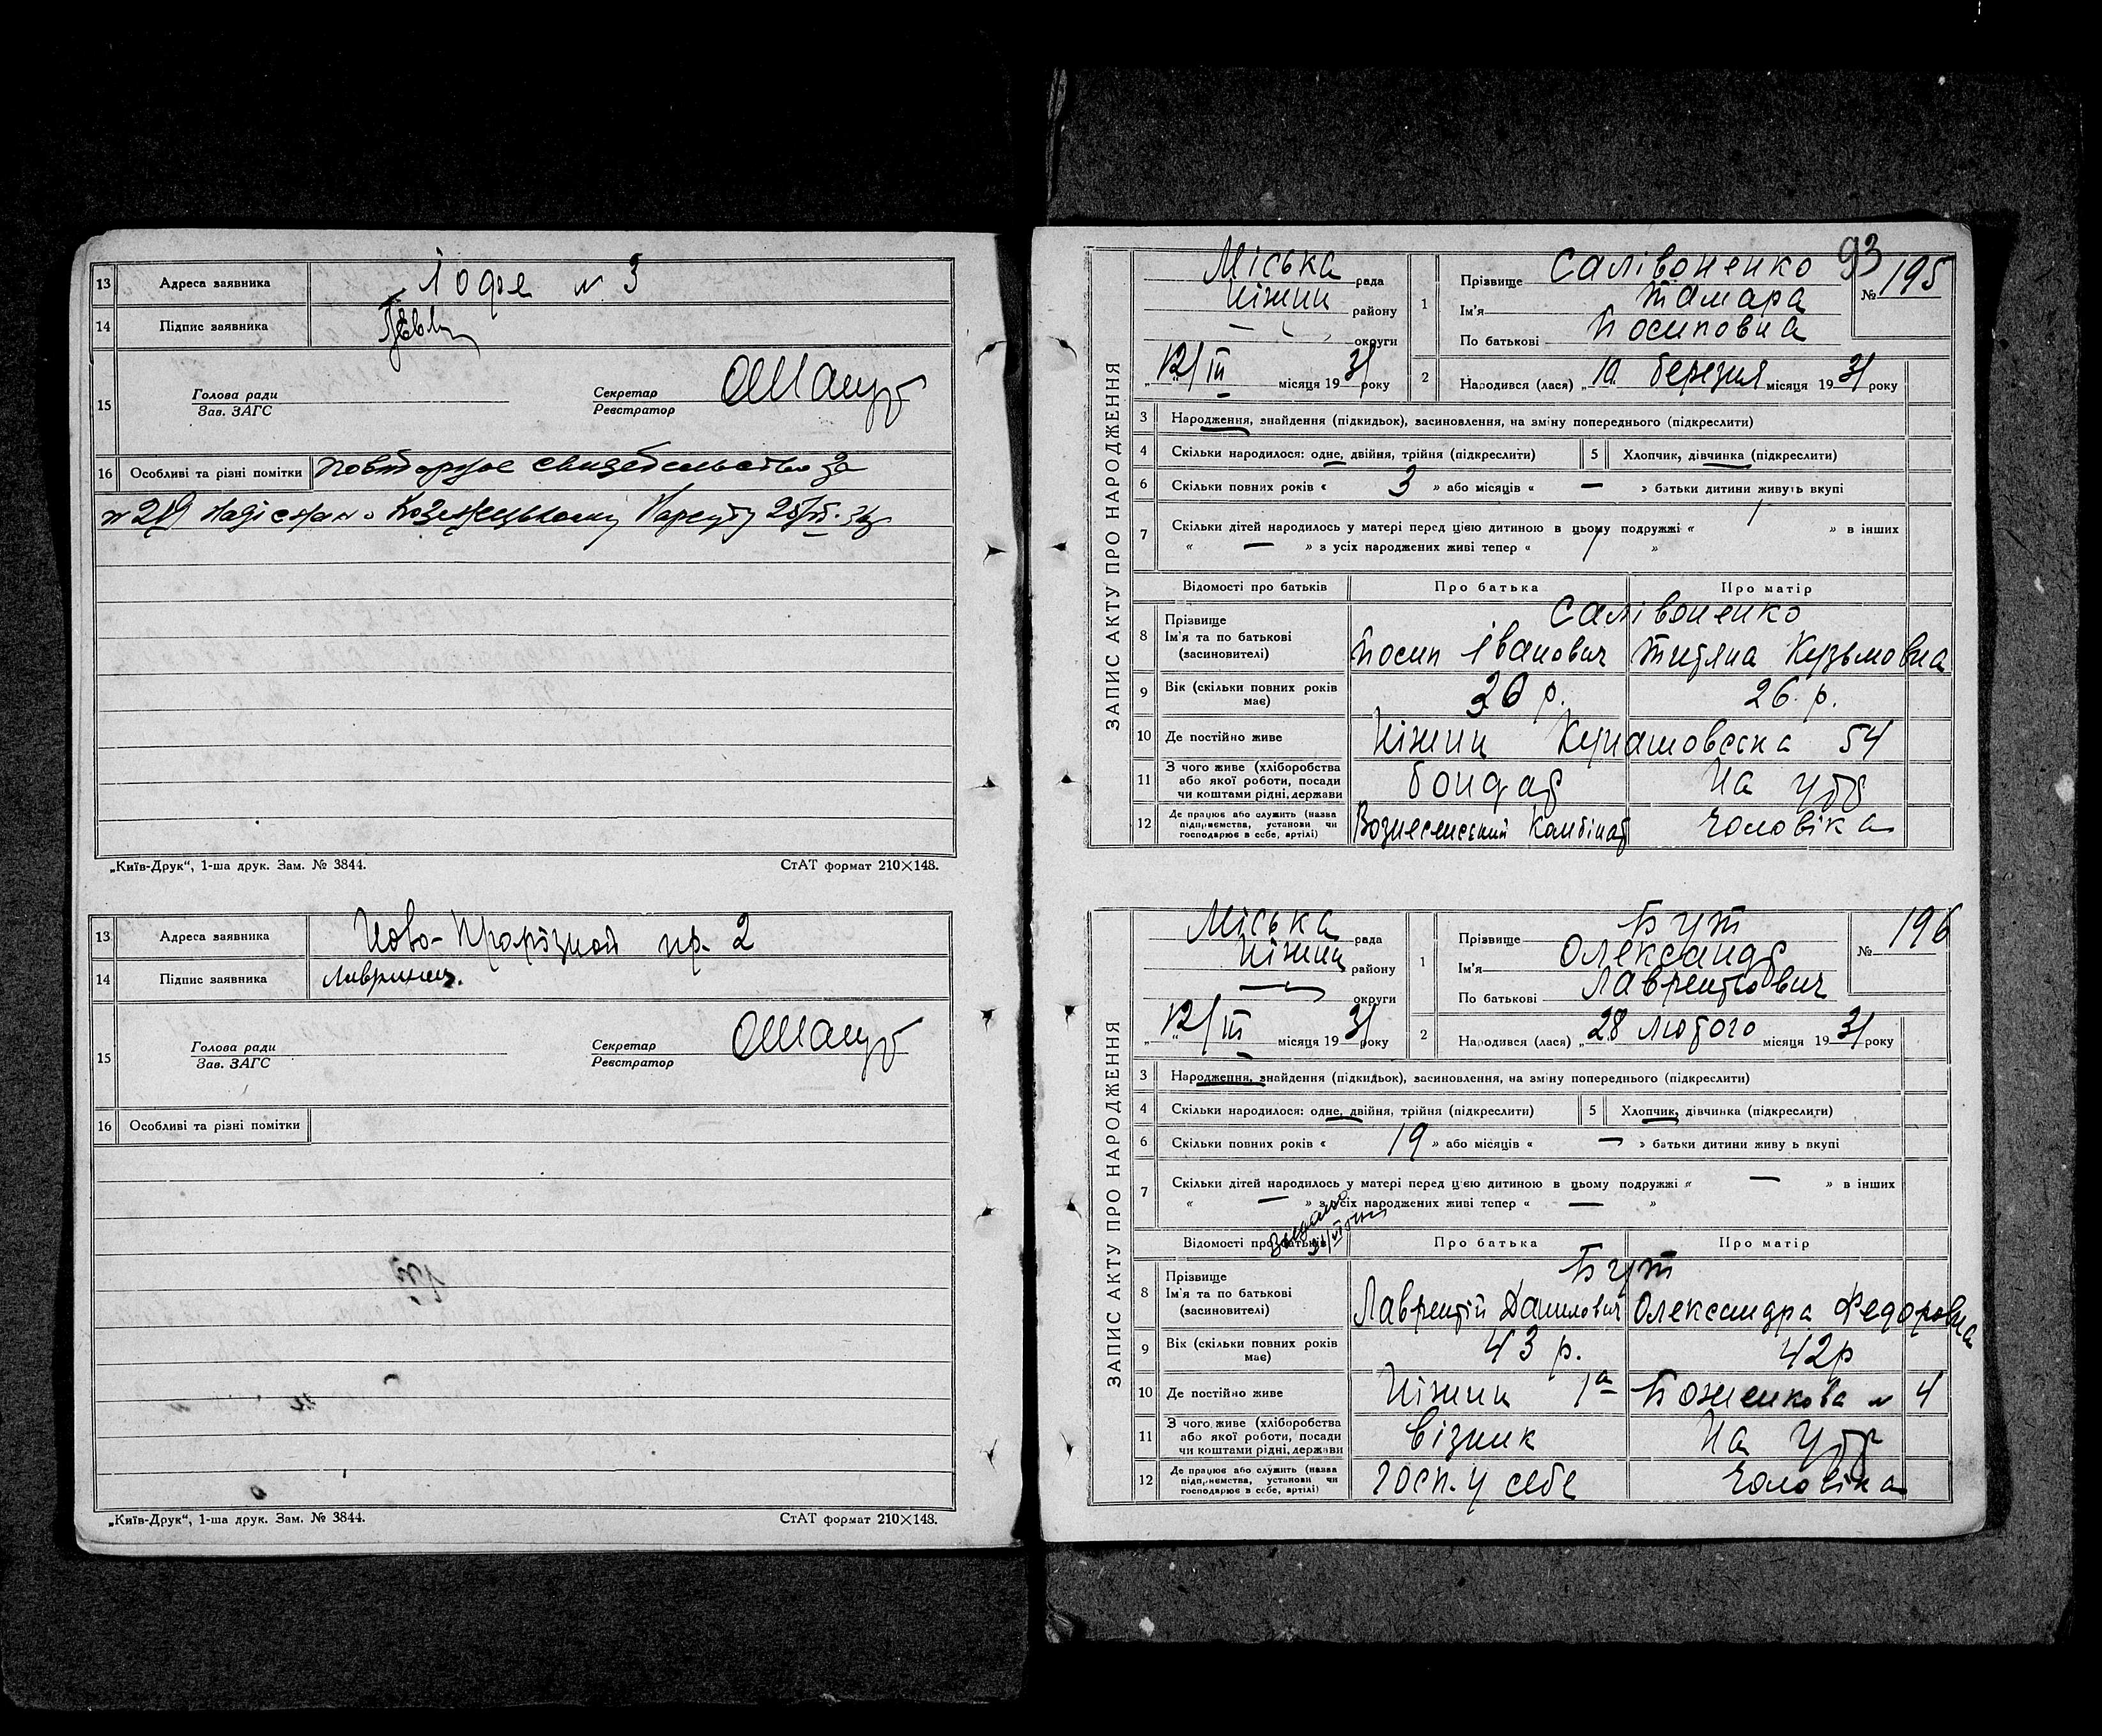 13 Адреса заявника Іофе № 3
14 Підпис заявника
15 Голова ради
Зав. ЗАГС
Секретар
Реєстратор
16 Особливі та різні помітки повторное свидетельство за
№ 219 надіслан Козелецькому Нарсуду
„Київ-Друк“, 1-ша друк. Зам. № 3844. СтАТ формат 210×148.
13 Адреса заявника Ново-Прорізной пр. 2
14 Підпис заявника
15 Голова ради
Зав. ЗАГС
Секретар
Реєстратор
16 Особливі та різні помітки
„Київ-Друк“, 1-ша друк. Зам. № 3844. СтАТ формат 210×148.
93
ЗАПИС АКТУ ПРО НАРОДЖЕННЯ
Міська рада
Ніжин району
округи
12/III місяця 1931 року
1 Прізвище Салівоненко
Ім'я Тамара
По батькові Йосиповна
№ 195
2 Народився (лася) „10 березня місяця 1931 року
3 Народження, знайдення (підкидьок), засиновлення, на зміну попереднього (підкреслити)
4 Скільки народилося: одне, двійня, трійня (підкреслити) 5 Хлопчик, дівчинка (підкреслити)
6 Скільки повних років « 3 » або місяців « — » батьки дитини живуть вкупі
7 Скільки дітей народилось у матері перед цією дитиною в цьому подружжі « 1 » в інших
« — » з усіх народжених живі тепер « 1 »
Відомості про батьків Про батька Про матір
8 Прізвище
Ім'я та по батькові
(засиновителі)
Салівоненко
Йосип Іванович Титяна Кузьмовна
9 Вік (скільки повних років має) 30 р. 26 р.
10 Де постійно живе Ніжин Кунашовська 54
11 З чого живе (хліборобства або якої роботи, посади чи коштами рідні, держави бондар На утр
12 Де працює або служить (назва підприємства, установи чи господарює в себе, артілі) Вознесенський Комбінат чоловіка
ЗАПИС АКТУ ПРО НАРОДЖЕННЯ
Міська рада
Ніжин району
округи
12/III місяця 1931 року
1 Прізвище Бут
Ім'я Олександр
По батькові Лаврентьович
№ 196
2 Народився (лася) „28 лютого місяця 1931 року
3 Народження, знайдення (підкидьок), засиновлення, на зміну попереднього (підкреслити)
4 Скільки народилося: одне, двійня, трійня (підкреслити) 5 Хлопчик, дівчинка (підкреслити)
6 Скільки повних років « 19 » або місяців « — » батьки дитини живу ь вкупі
7 Скільки дітей народилось у матері перед цією дитиною в цьому подружжі « — » в інших
« — » з усіх народжених живі тепер « — »
Відомості про батьків Про батька Про матір
8 Прізвище
Ім'я та по батькові
(засиновителі)
Бут
Лаврентій Данилович Олександра Федоровна
9 Вік (скільки повних років має) 43 р. 42р
10 Де постійно живе Ніжин 1а Боженкова № 4
11 З чого живе (хліборобства або якої роботи, посади чи коштами рідні, держави візник На утр
12 Де працює або служить (назва підприємства, установи чи господарює в себе, артілі) госп. у себе чоловіка